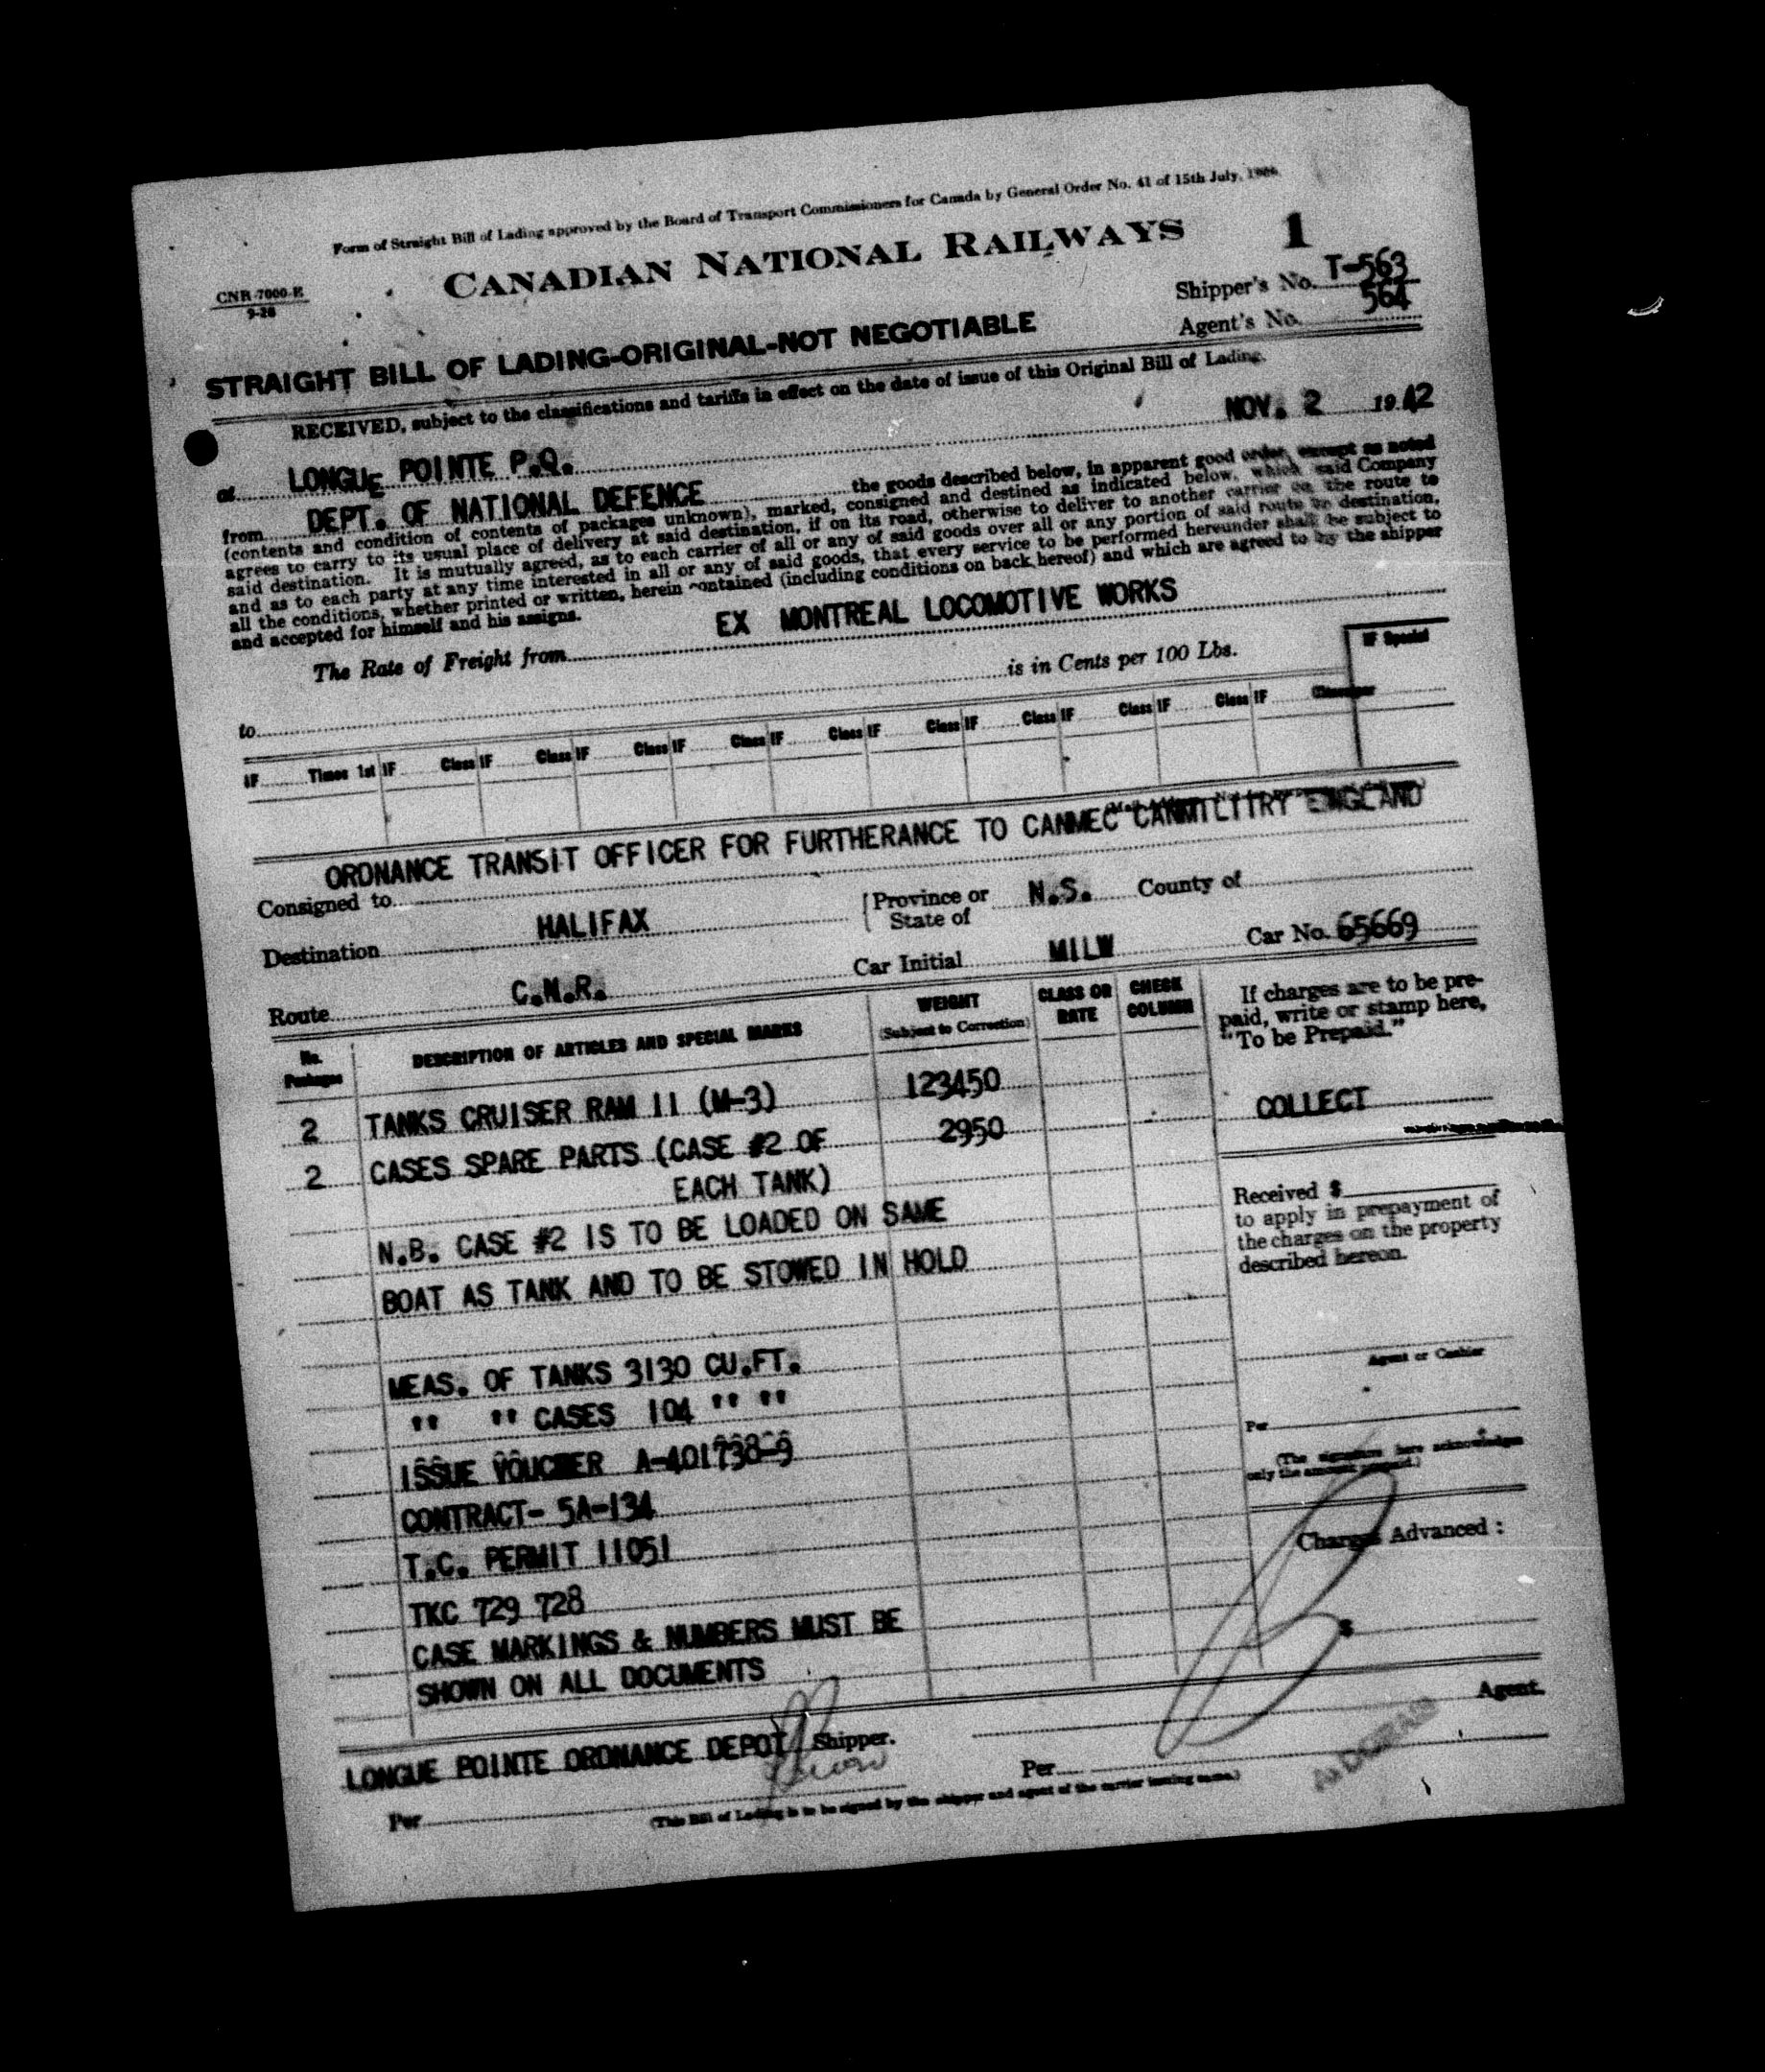 Form of Straight Bill of Lading approved by the Board of Transport Commissioners for Canada by General Order No. 41 of 15th July,
CANADIAN NATIONAL RAILWAYS 1
CNR-7000-E
9-28
Shipper's No. T-563
564
Agent's No.
STRAIGHT BILL OF LADING-ORIGINAL-NOT NEGOTIABLE
RECEIVED, subject to the classifications and tariffs in effect on the date of issue of this Original Bill of Lading.
at LONGUE POINTE P.Q. NOV. 2 1942
from DEPT. OF NATIONAL DEFENCE the goods described below, in apparent good order, except as noted
(contents and condition of contents of packages unknown), marked, consigned and destined as indicated below, which said Company
agrees to carry to its usual place of delivery at said destination, if on its road, otherwise to deliver to another carrier on the route to
said destination. It is mutually agreed, as to each carrier of all or any of said goods over all or any portion of said route to destination,
and as to each party at any time interested in all or any of said goods, that every service to be performed hereunder shall be subject to
all the conditions, whether printed or written, herein contained (including conditions on back hereof) and which are agreed to by the shipper
and accepted for himself and his assigns.
The Rate of Freight from EX MONTREAL LOCOMOTIVE WORKS
to is in Cents per 100 Lbs.
IF Special
IF Times 1st IF Class IF Class IF Class IF Class IF Class IF Class IF Class IF Class IF Class IF
ORDNANCE TRANSIT OFFICER FOR FURTHERANCE TO CANMEC CANMILITRY ENGLAND
Consigned to
Destination HALIFAX Province or State of N.S. County of
Route C.N.R. Car Initial MILW Car No. 65669
No. Packages DESCRIPTION OF ARTICLES AND SPECIAL MARKS WEIGHT (Subject to Correction) CLASS OR RATE CHECK COLUMN
If charges are to be pre-
paid, write or stamp here,
"To be Prepaid."
COLLECT
2 TANKS CRUISER RAM II (M-3) 123450
2 CASES SPARE PARTS (CASE #2 OF 2950
EACH TANK)
N.B. CASE #2 IS TO BE LOADED ON SAME
BOAT AS TANK AND TO BE STOWED IN HOLD
MEAS. OF TANKS 3130 CU.FT.
" " CASES 104 " "
ISSUE VOUCHER A-401738-9
CONTRACT- 5A-134
T.C. PERMIT 11051
TKC 729 728
CASE MARKINGS & NUMBERS MUST BE
SHOWN ON ALL DOCUMENTS
Received $
to apply in prepayment of
the charges on the property
described hereon.
Agent or Cashier
Per
(The signature here acknowledges
only the amount prepaid.)
Charges Advanced:
$
LONGUE POINTE ORDNANCE DEPOT Shipper.
Agent.
Per
Per
(This Bill of Lading is to be signed by the shipper and agent of the carrier issuing same.)